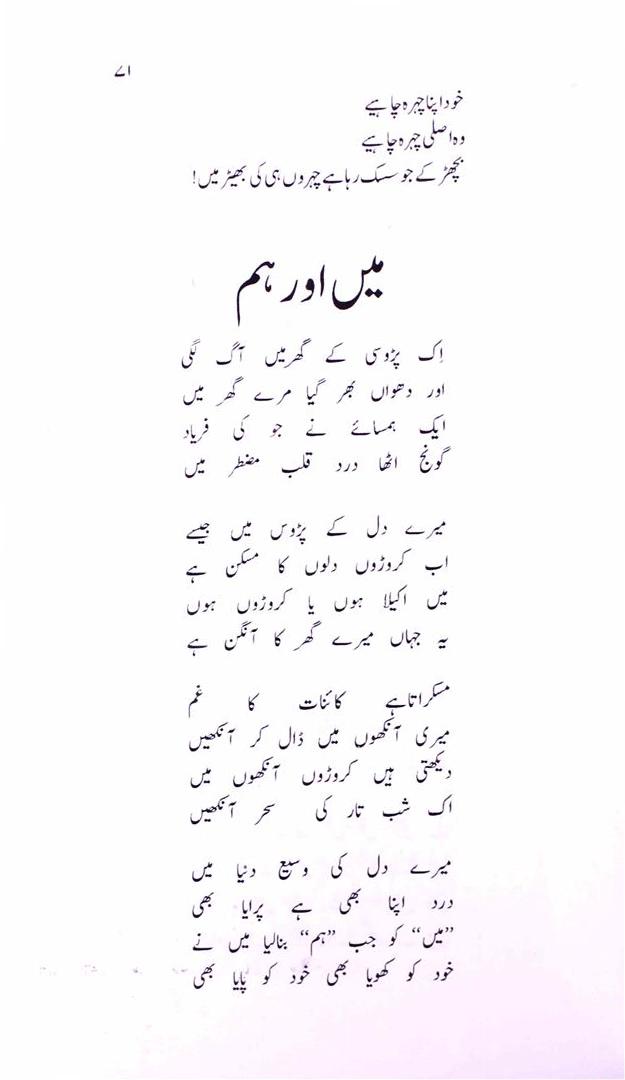 ۷۱
خود اپنا چہرہ چاہیے
وہ اصلی چہرہ چاہیے
بچھڑ کے جو سسک رہا ہے چہروں ہی کی بھیڑ میں!
میں اور ہم
اِک پڑوسی کے گھر میں آگ لگی
اور دھواں بھر گیا مرے گھر میں
ایک ہمسائے نے جو کی فریاد
گونج اٹھا درد قلب مضطر میں
میرے دل کے پڑوس میں جیسے
اب کروڑوں دلوں کا مسکن ہے
میں اکیلا ہوں یا کروڑوں ہوں
یہ جہاں میرے گھر کا آنگن ہے
مسکراتا ہے کائنات کا غم
میری آنکھوں میں ڈال کر آنکھیں
دیکھتی ہیں کروڑوں آنکھوں میں
اک شب تار کی سحر آنکھیں
میرے دل کی وسیع دنیا میں
درد اپنا بھی ہے پرایا بھی
”میں“ کو جب ”ہم“ بنالیا میں نے
خود کو کھویا بھی خود کو پایا بھی